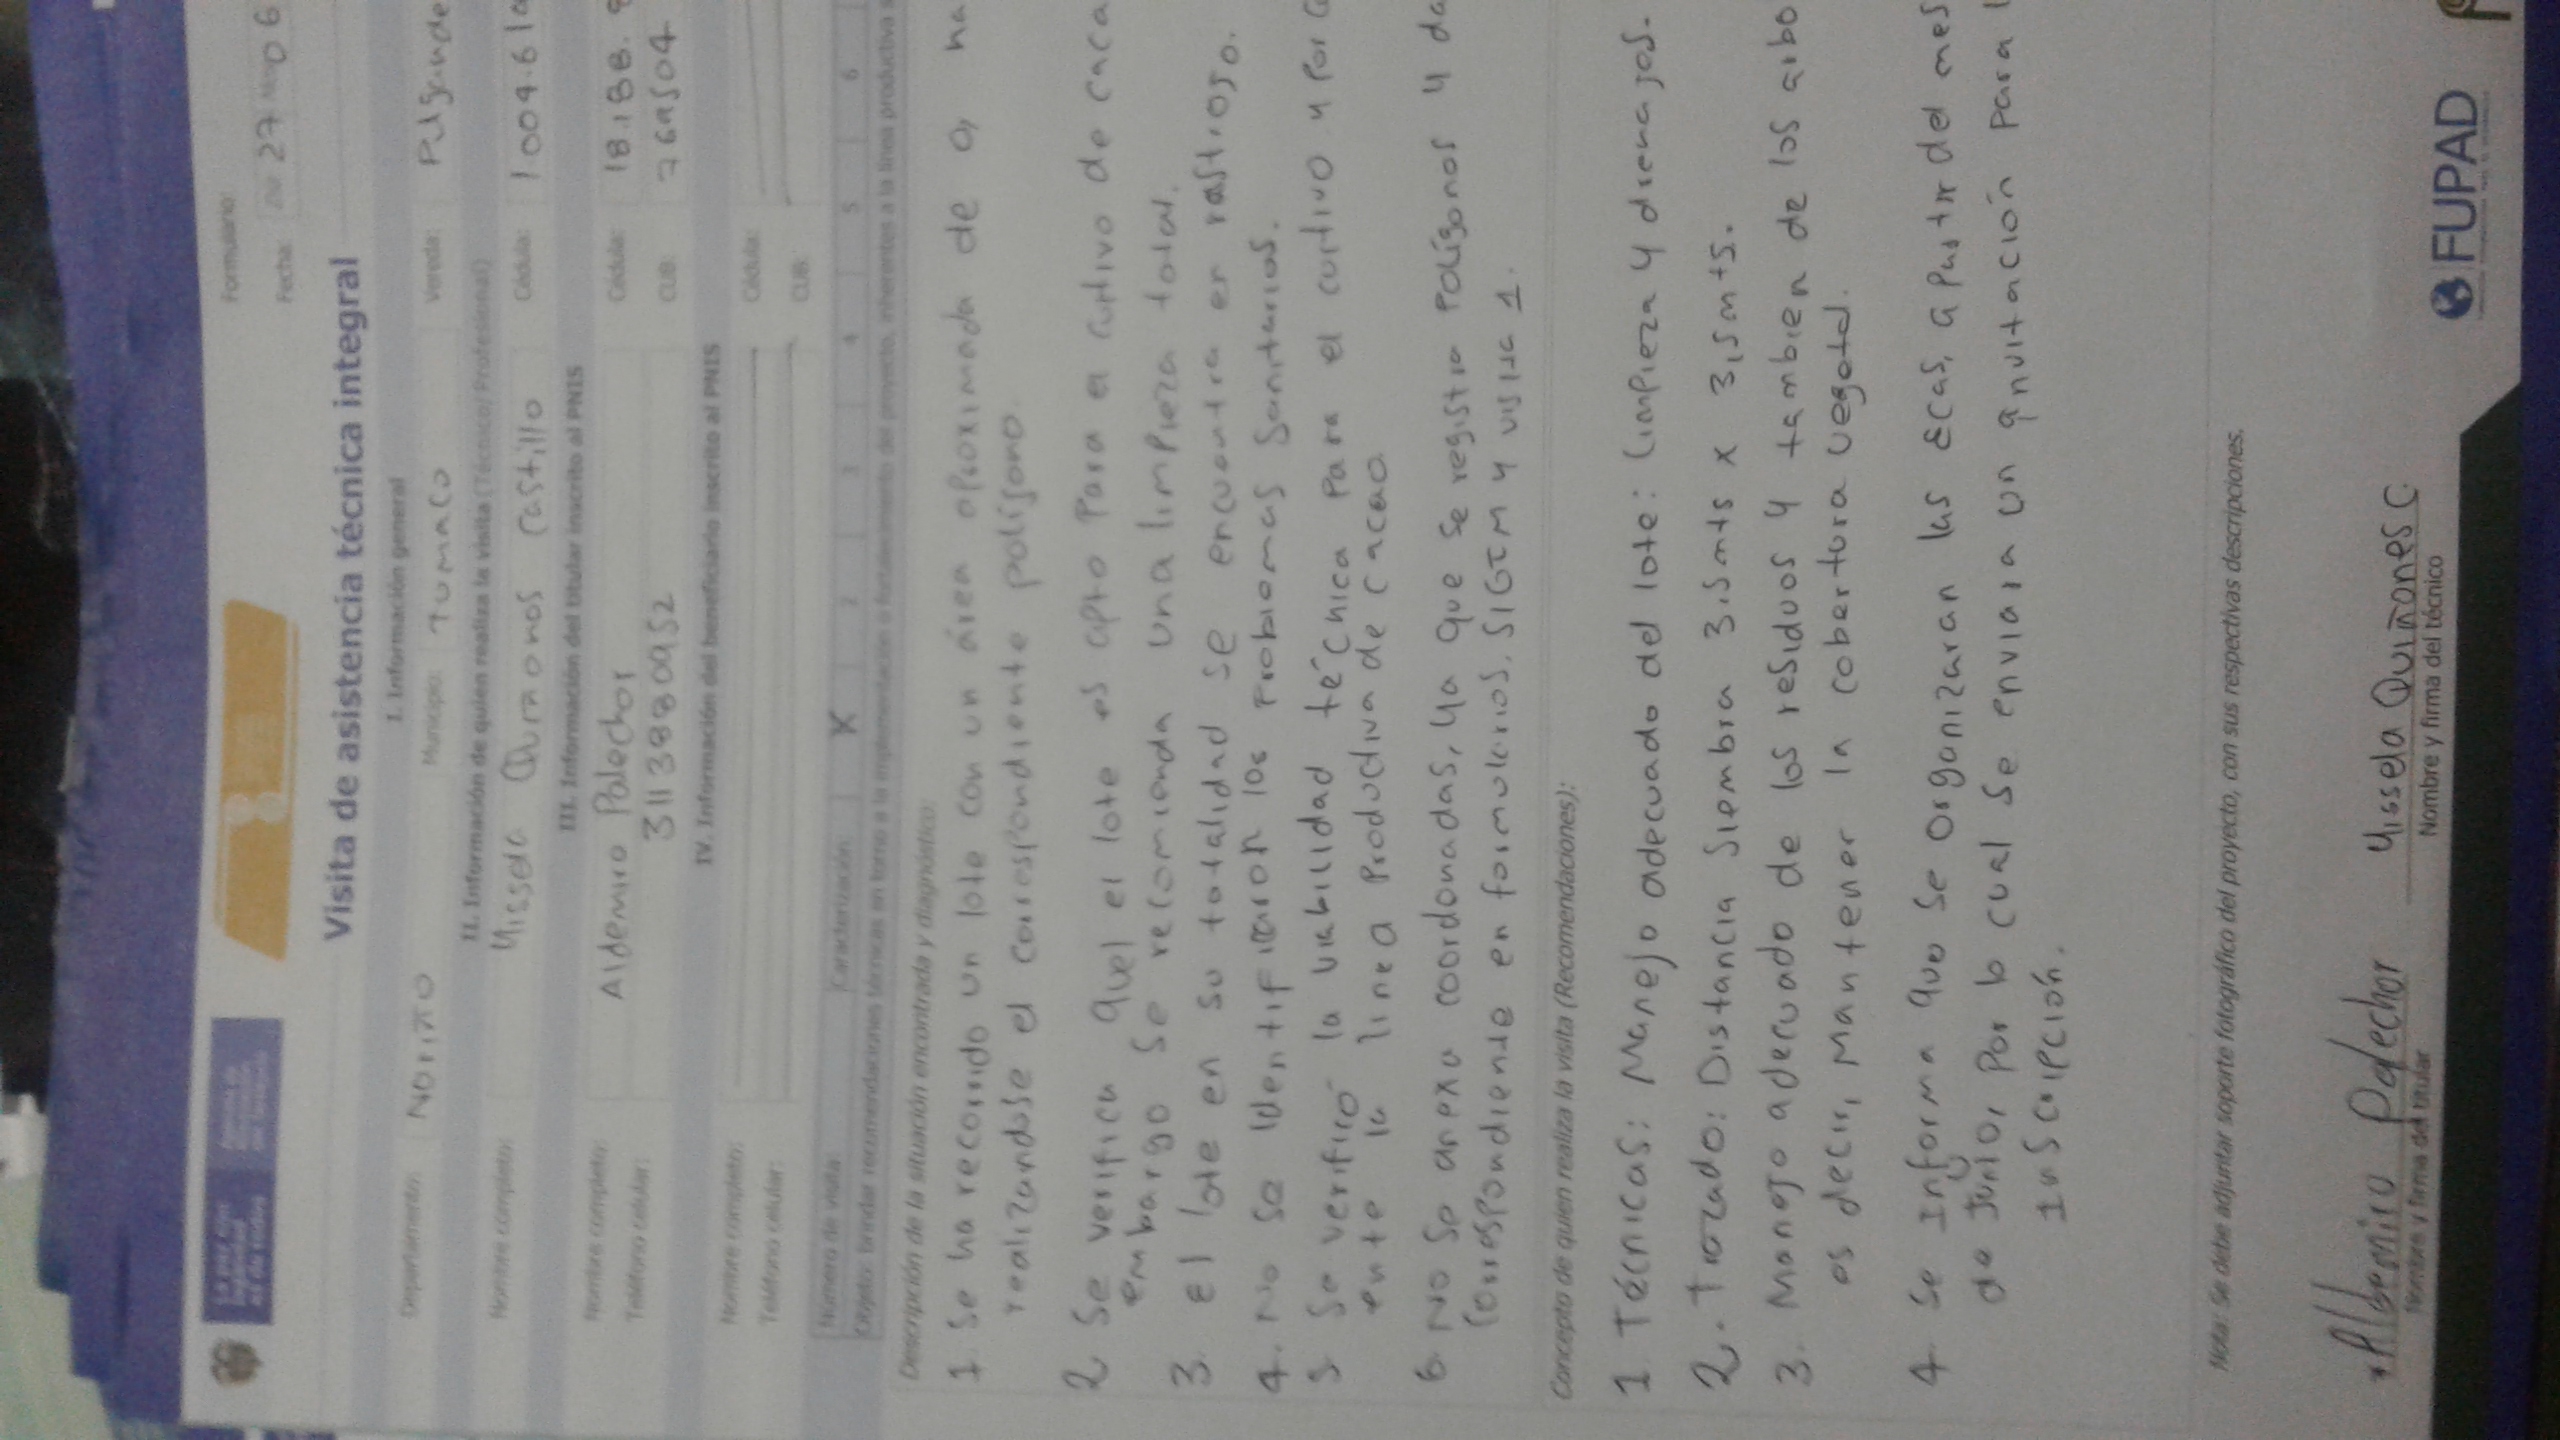 Formulario:
Fecha: 27 06
Visita de asistencia técnica integral
I. Información general
Departamento: Nariño Municipio: Tumaco Vereda: Pulgande
II. Información de quien realiza la visita (Técnico/Profesional)
Nombre completo: Yissela Quiñones Castillo Cédula: 1004.610
III. Información del titular inscrito al PNIS
Nombre completo: Aldemiro Palechor Cédula: 18.188.
Teléfono celular: 3113880952 CUB: 769504
IV. Información del beneficiario inscrito al PNIS
Nombre completo: Cédula:
Teléfono celular: CUB:
Número de visita: Caracterización: X 1 2 3 4 5 6
Objeto: brindar recomendaciones técnicas en torno a la implementación o fortalecimiento del proyecto, inherentes a la línea productiva
Descripción de la situación encontrada y diagnóstico:
1. Se ha recorrido un lote con un área aproximada de 0, ha
realizandose el correspondiente polígono.
2 Se verifica quel el lote es apto para el cultivo de caca
embargo se recomienda una limpieza total.
3. el lote en su totalidad se encuentra en rastrojo.
4. No se identificaron los problemas Sanitarios.
5 Se verificó la viabilidad técnica para el cultivo y por c
ente la linea productiva de cacao.
6. No se anexa coordenadas, ya que se registro polígonos y da
Correspondiente en formularios. SIGTM y visita 1.
Concepto de quien realiza la visita (Recomendaciones):
1 Técnicas: Manejo adecuado del lote: Limpieza y drenajos.
2. Trazado: Distancia Siembra 3,5mts x 3,5mts.
3. Manejo adecuado de los residuos y tambien de los arbo
es decir, Mantener la cobertura vegetal.
4 Se Informa que se organizaran las Ecas, a partir del mes
de Junio, por lo cual se enviara un anvitación para l
Inscripción.
Nota: Se debe adjuntar soporte fotográfico del proyecto, con sus respectivas descripciones.
Aldemiro Palechor Yissela Quiñones C.
Nombre y firma del titular Nombre y firma del técnico
FUPAD